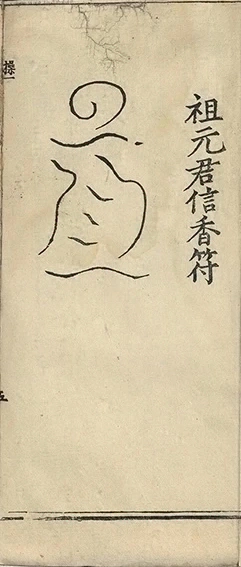 祖元君信香符
操一
五